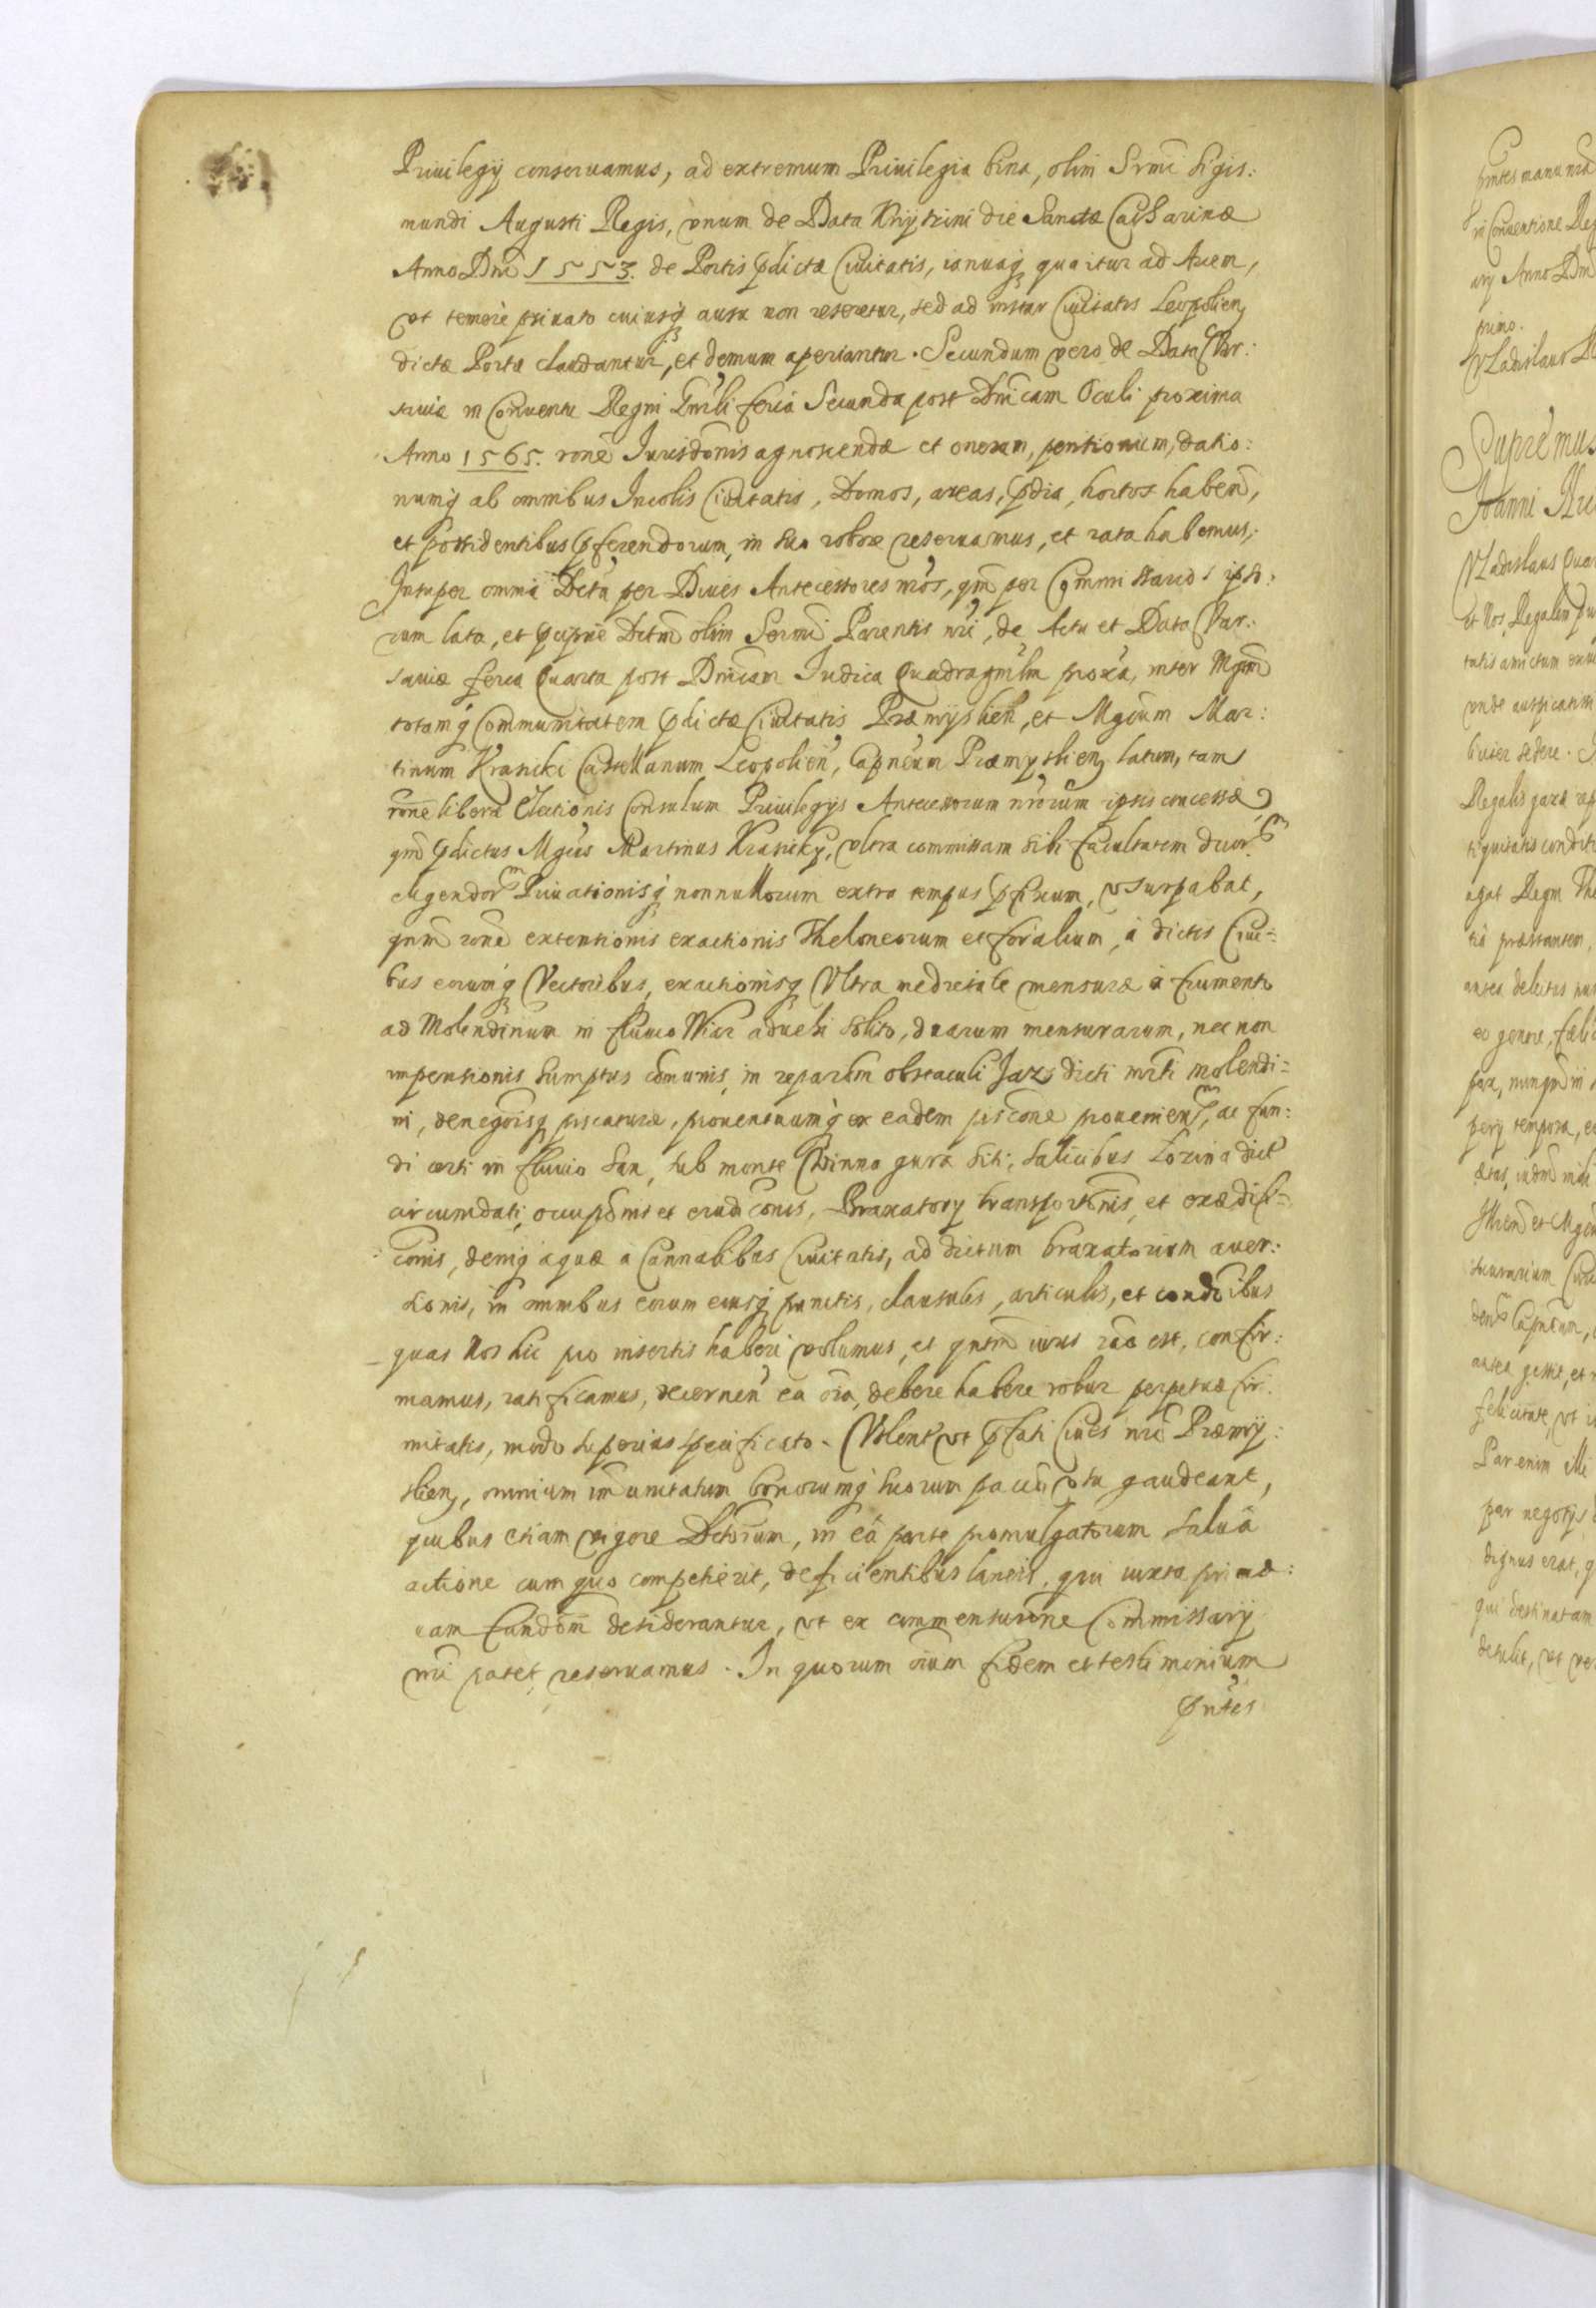 Priuilegij conseruamus, ad extremum Priuilegia bina, olim Srmi Sigis:
mundi Augusti Regis, vnum de Data Knyszini die Sanctæ Catharinæ
Anno Dni 1553. de Portis pdictæ Ciuitatis, ianuaq3 qua itur ad Arcem,
vt temerè priuato cuiusq3 ausu non reseretur, sed ad instar Ciuitatis Leopolien
dictæ Portæ claudantur, et demum aperiantur. Secundum vero de Data Var:
sauiæ in Conuentu Regni Gnrli feria Secunda post Dnicam Oculi proxima
Anno 1565. rone Iurisdonis agnoscendæ et onerum, pensionum, datio:
numq3 ab omnibus Incolis Ciuitatis, Domos, areas, pdia, hortos haben,
et possidentibus pferendorum, in suo robore reseruamus, et rata habemus,
Insuper omnia Dcta per Diuos Antecessores nros, qm per Commissarios ipso:
rum lata, et pcipue Dctm olim Sermi Parentis nri, de Actu et Data Var:
sauiæ feria Quarta post Dnicam Iudica Quadragmlm proxa, inter Mgtm
totamq3 Communitatem pdictæ Ciuitatis Præmyslien, et Mgcum Mar:
tinum Krasicki Castellanum Leopolien, Capneum Præmyslien latum, tam
rone liberæ Electionis Consulum Priuilegijs Antecessorum nrorum ipsis concessæ,
qm pdictus Mgcus Martinus Krasicky, vltra commissam sibi facultatem duor
eligendor Priuationisq3 nonnullorum extra tempus pfixum, vsurpabat,
qum rone extensionis exactionis Theloneorum et foralium, à dictis Ciui:
bus eorumq3 Vectoribus, exactionisq3 Vltra medietate mensuræ à frumento
ad Molendinum in fluuio Wiar aduehi solito, duarum mensurarum, nec non
impensionis sumptus comunis, in reparom obstaculi Jaz dicti nrti molendi:
ni, denegoisq3 piscaturæ, prouentuumq3 ex eadem piscone prouenien, ac fun:
di certi in fluuio San, sub monte Winna gura siti, salicibus Lozina dict
circumdati, occuponis et eradiconis, Braxatorij transportonis, et exædifi:
conis, deniq3 aquæ à Cannalibus Ciuitatis, ad dictum braxatorium auer:
sionis, in omnibus eorum eiusq3 punctis, clausulis, articulis, et condoibus
quas Nos hic pro insertis haberi volumus, et qntm iuris rao est, confir:
mamus, ratificamus, decernen ea oia, debere habere robur perpetuæ fir:
mitatis, modo superius specificato. Volent vt pfati Ciues nri Præmy:
slien, omnium imunitatum bonorumq3 suorum pacifi vsu gaudeant,
quibus etiam vigore Dctorum, in eâ parte promulgatorum saluâ
actione cum quo competierit, deficientibus laneis, qui iuxta primæ:
uam fundom desiderantur, vt ex commensurone Commissarij
nri patet, reseruamus. In quorum oium fidem et testimonium
pntes